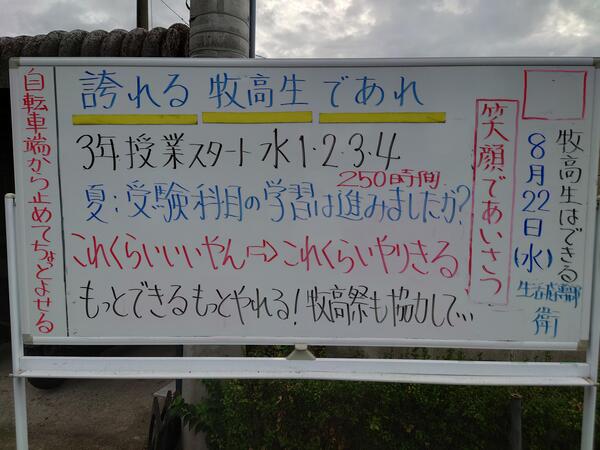 誇れる 牧高生 であれ
3年 授業スタート 水1・2・3・4
250時間
夏:受験科目の学習は進みましたか?
これくらいいいやん⇨これくらいやりきる
もっとできるもっとやれる!牧高祭も協力して…
笑顔であいさつ
牧高生はできる
8月22日(水)
衛
自転車端から止めてちょっとよせる